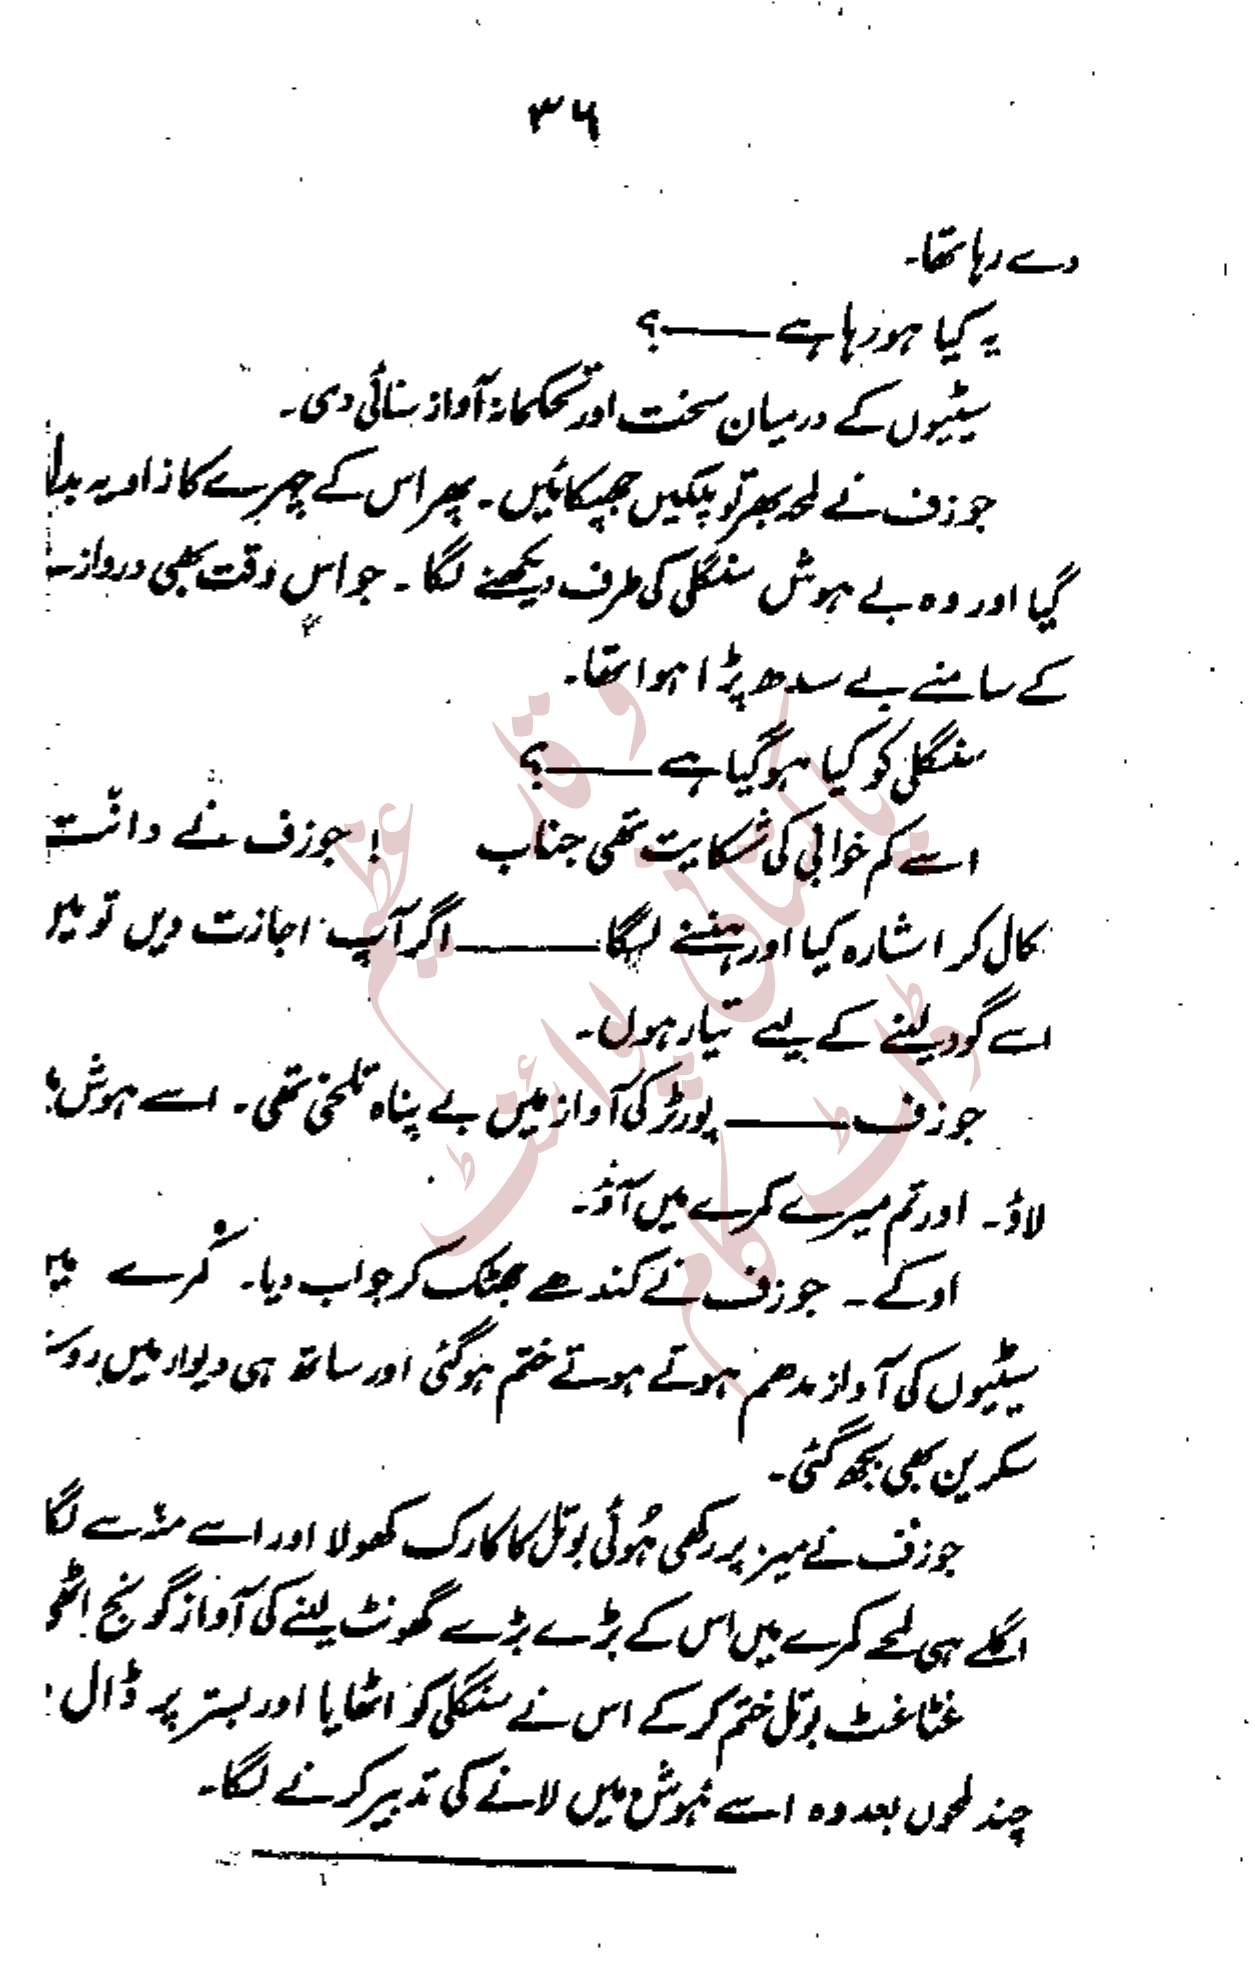 ۳۶
دے رہا تھا۔
یہ کیا ہو رہا ہے ——— ؟
سیٹیوں کے درمیان سخت اور تحکمانہ آواز سنائی دی۔
جوزف نے لمحہ بھر تو پلکیں جھپکائیں۔ پھر اس کے چہرے کا زاویہ بدل
گیا اور وہ بے ہوش سنگلی کی طرف دیکھنے لگا۔ جو اس وقت بھی دروازے
کے سامنے بے سدھ پڑا ہوا تھا۔
سنگلی کو کیا ہو گیا ہے ——— ؟
اسے کم خوابی کی شکایت تھی جناب ! جوزف نے دانت
نکال کر اشارہ کیا اور ہنسنے لگا ——— اگر آپ اجازت دیں تو میں
اسے گود لینے کے لیے تیار ہوں۔
جوزف ——— پورٹر کی آواز میں بے پناہ تلخی تھی۔ اسے ہوش
لاؤ۔ اور تم میرے کمرے میں آؤ۔
اوکے۔ جوزف نے کندھے جھٹک کر جواب دیا۔ کمرے میں
سیٹیوں کی آواز مدھم ہوتے ہوتے ختم ہو گئی اور ساتھ ہی دیوار میں روشن
سکرین بھی بجھ گئی۔
جوزف نے میز پر رکھی ہُوئی بوتل کا کارک کھولا اور اسے منہ سے لگا
اگلے ہی لمحے کمرے میں اس کے بڑے بڑے گھونٹ لینے کی آواز گونج اٹھی
غٹاغٹ بوتل ختم کر کے اس نے سنگلی کو اٹھایا اور بستر پر ڈال
چند لمحوں بعد وہ اسے ہوش میں لانے کی تدبیر کرنے لگا۔
وقار عظیم
پاکستانی پوائنٹ
ڈاٹ کام